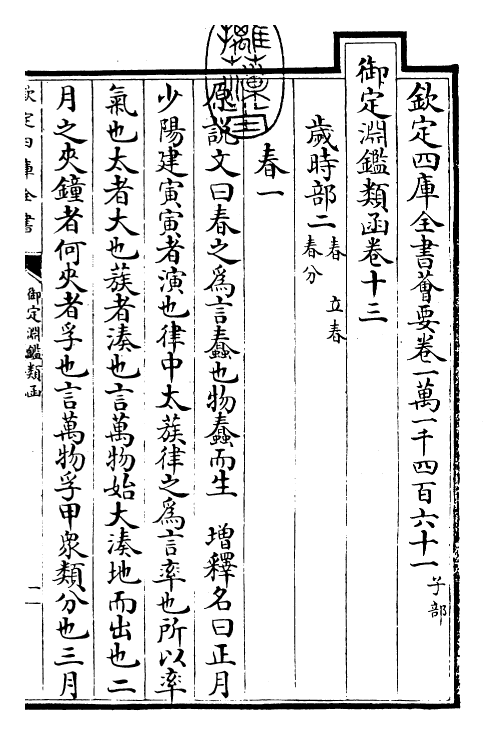 欽定四庫全書薈要卷一萬一千四百六十一子部
御定淵鑑類函卷十三
歲時部二春 立春
春分
春一
原說文曰春之為言蠢也物蠢而生 增釋名曰正月
少陽建寅寅者演也律中太蔟律之為言率也所以率
氣也太者大也蔟者湊也言萬物始大湊地而出也二
月之夾鐘者何夾者孚也言萬物孚甲衆類分也三月
欽定四庫全書
御定淵鑑類函